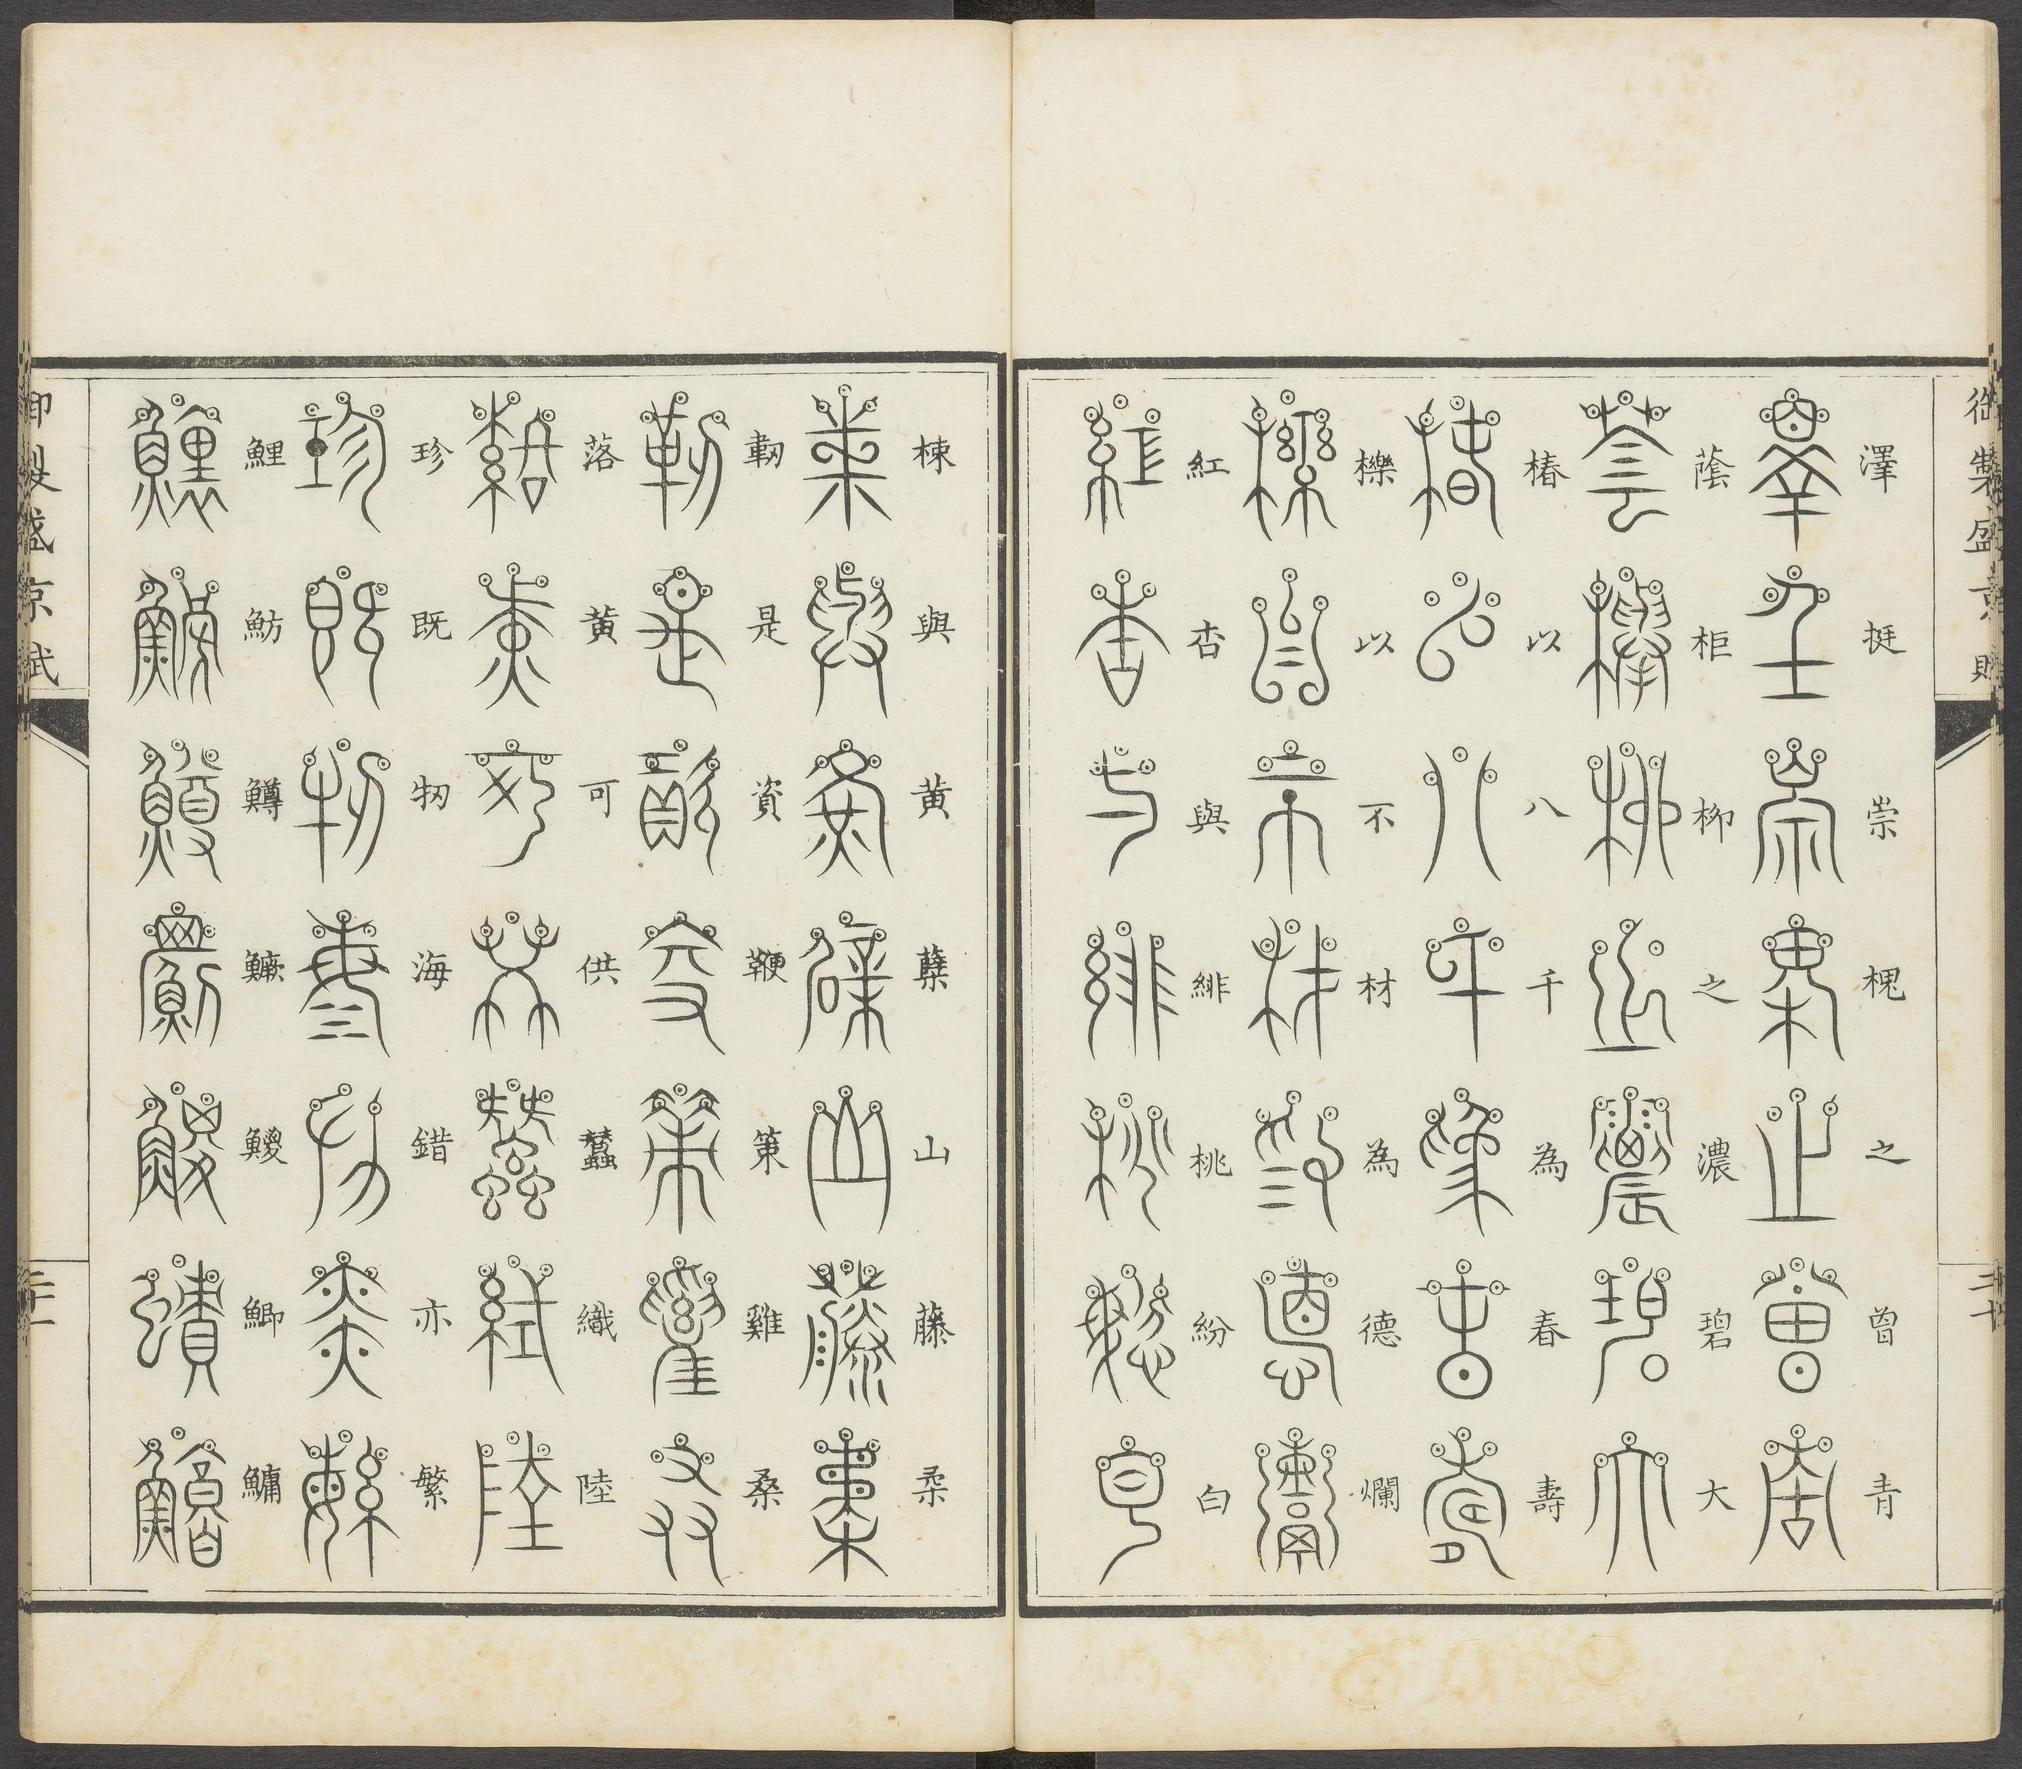 澤挺崇槐之曾青
蔭柜柳之濃碧大
椿以八千為春壽
櫟以不材為德爛
紅杏與緋桃紛白
棟與黃蘗山藤柔
韌是資鞭策雞桑
落黃可供蠶織陸
珍既牣海錯亦繁
鯉魴鱒鱖鯼鯽鱅
御製盛京賦
二十一